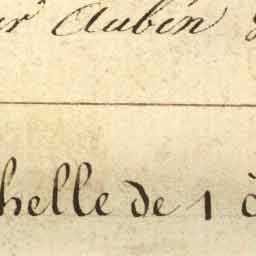 r Aubin
helle de 1 à